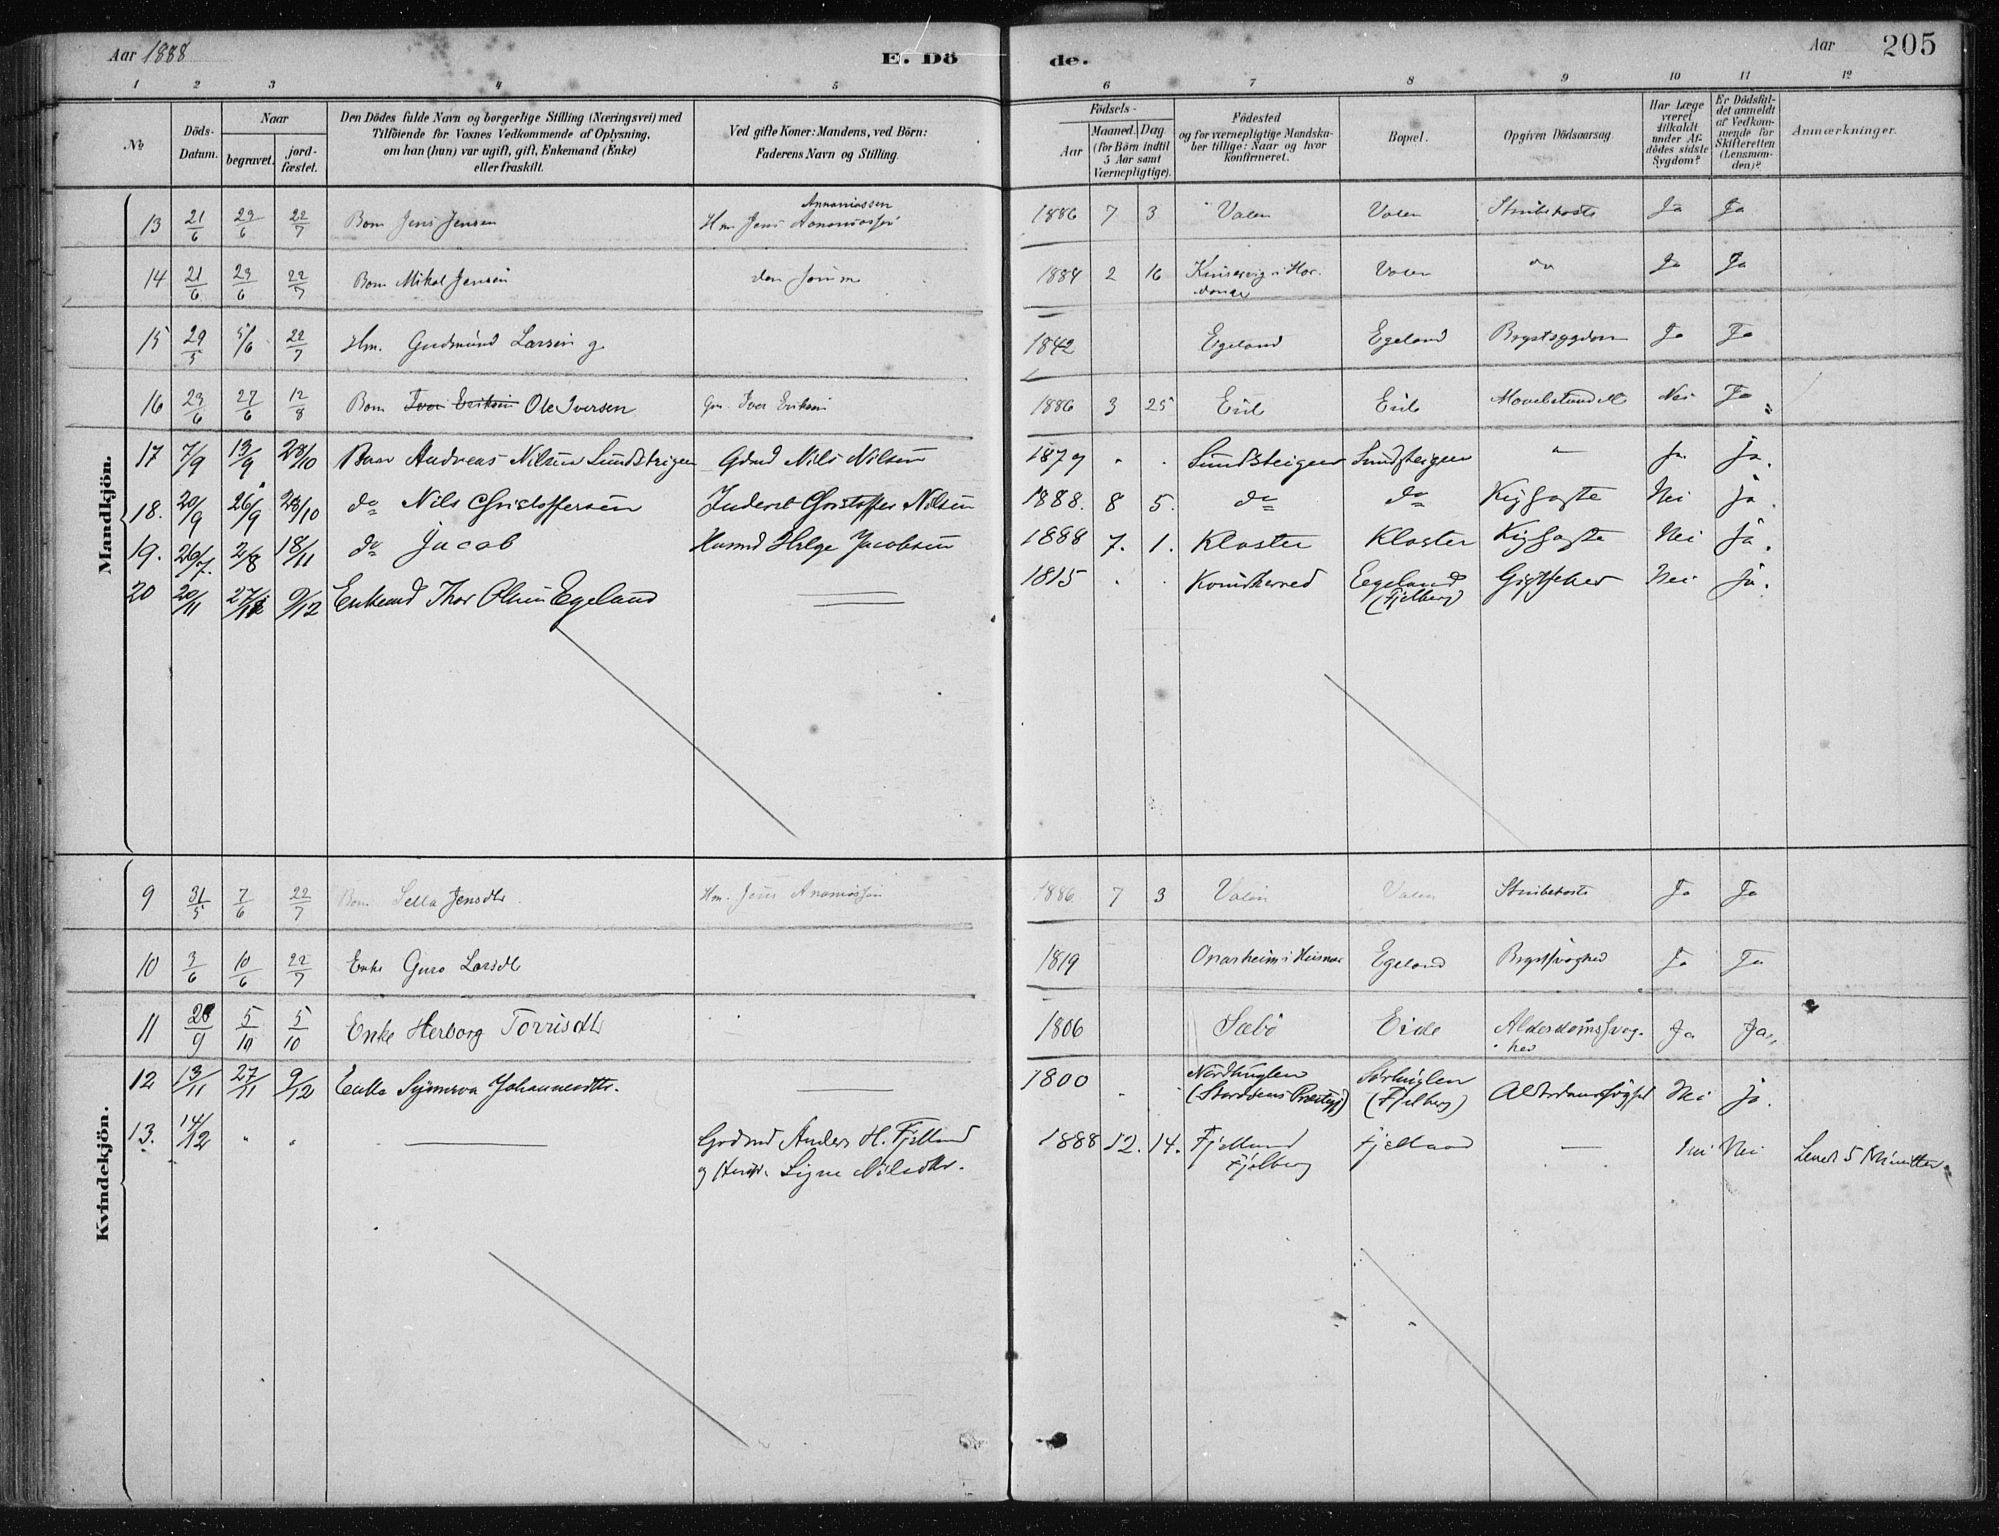 Aar 1888
E. Dö
de.
Aar
205
1 2 3 4 5 6 7 8 9 10 11 12
No
Döds-
Datum.
Naar
begravet.
jord-
fæstet.
Den Dödes fulde Navn og borgerlige Stilling (Næringsvei) med
Tilföiende for Voxnes Vedkommende af Oplysning,
om han (hun) var ugift, gift, Enkemand (Enke)
eller fraskilt.
Ved gifte Koner: Mandens, ved Börn:
Faderens Navn og Stilling.
Födsels-
Aar
Maaned. Dag
(for Börn indtil
5 Aar samt
Værnepligtige).
Födested
og for værnepligtige Mandska-
ber tillige: Naar og hvor
konfirmeret.
Bopæl.
Opgiven Dödsaarsag.
Har Læge
været
tilkaldt
under Af-
dödes sidste
Sygdom?
Er Dödsfal-
det anmeldt
af Vedkom-
mende for
Skifteretten
(Lensman-
den)?
Anmærkninger.
Mandkjön.
Annaniassen
13 21/6 23/6 22/7 Barn Jens Jensen Hm Jens 1886 7 3 Valen Valen Strubehoste Ja Ja
14 21/6 23/6 22/7 Barn Mikal Jensen den samme 1884 2 16 Kinservig i Har- Valen do Ja Ja
danger
15 29/5 5/6 22/7 Hm. Gudmund Larsen g. 1842 Egeland Egeland Brystsygdom Ja Ja
16 23/6 27/6 12/8 Barn Iver Eriksen Ole Iversen Gm. Iver Eriksen 1886 3 25 Eid Eid Nei Ja
17 7/9 13/9 28/10 Barn Andreas Nilsen Sundsteigen Gdmd Nils Nilsen 1879 " . Sundsteigen Sundsteigen " Ja Ja.
18. 20/9 26/9 28/10 do Nils Christoffersen Inderst Christoffer Nilsen 1888. 8 5. do do Kighoste Nei Ja.
19. 26/7. 2/8 18/11 do Jacob Husmd Helge Jacobsen 1888 7. 1. Kloster Kloster Kighoste Nei Ja.
20 20/11 9/12 Enkemd Thor Olsen Egeland 1815 " . Egeland Gigtfeber Nei Ja.
(Fjelberg)
Kvindekjön.
9 31/5 7/6 22/7 Barn Sella Jensdtr Hm. Jens Ananiassen 1886 7 3 Valen Valen Strubehoste Ja Ja
10 3/6 10/6 22/7 Enke Guro Larsdtr 1819 Onarheim i Egeland Brystsvaghed Ja Ja
11 28/9 5/10 5/10 Enke Herborg Torrisdtr 1806 Sæbö Eide Alderdomssvag- Ja Ja
hed
12 13/11 27/11 9/12 Enke Synneva Johannesdtr. 1800 " . Nordhuglen Sörhuglen Nei Ja.
(Stordöens Præstegj) (Fjelberg)
13. 14/12 " " Grdmd Anders H. Fjelland 1888 12. 14. Fjelland Fjelland Nei Nei Levet 5 Minutter.
og Hustr. Signe Nilsdtr. Fjelberg